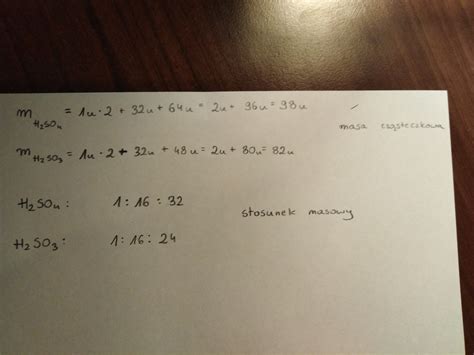 m H₂SO₄ = 1u · 2 + 32u + 64u = 2u + 96u = 98u
masa cząsteczkowa
m H₂SO₃ = 1u · 2 + 32u + 48u = 2u + 80u = 82u
H₂SO₄ : 1 : 16 : 32
stosunek masowy
H₂SO₃ : 1 : 16 : 24